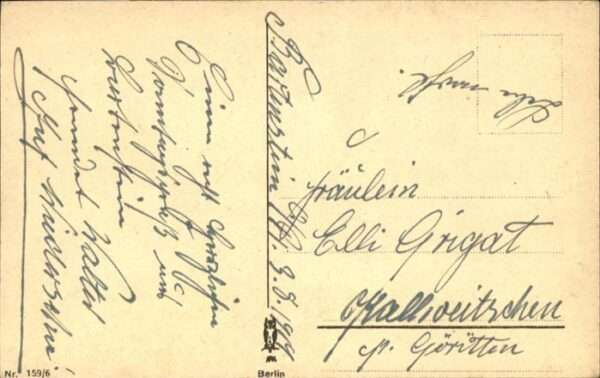 Einen recht herzlichen
Sonntagsgruß aus
Bartenstein
sendet Walter
Auf Wiedersehn!
Bartenstein 3.8.1919
Fräulein
Elli Grigat
Kallweitschen
p. Göritten
Nr. 159/6
Berlin